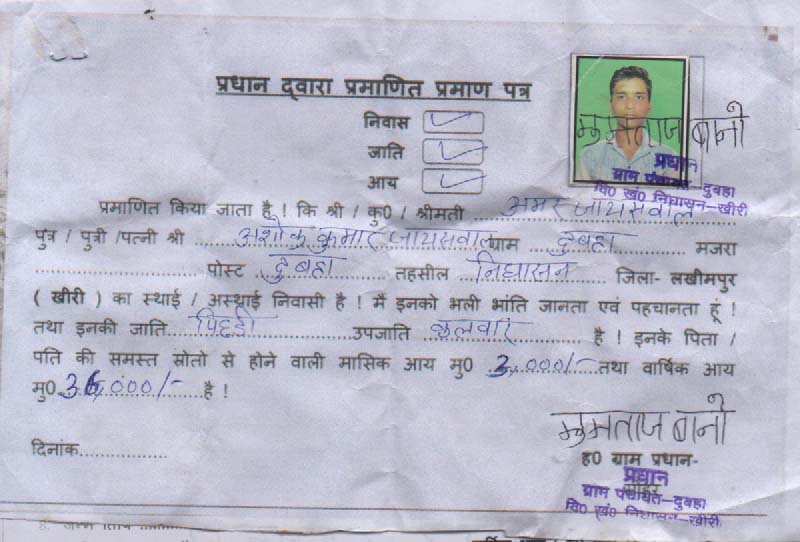 प्रधान द्वारा प्रमाणित प्रमाण पत्र
निवास
जाति
आय
मुमताज बानो
प्रधान
ग्राम पंचायत-दुबहा
वि0 खं0 निघासन-खीरी
प्रमाणित किया जाता है ! कि श्री / कु0 / श्रीमती अमर जायसवाल
पुत्र / पुत्री /पत्नी श्री अशोक कुमार जायसवाल ग्राम दुबहा मजरा
पोस्ट दुबहा तहसील निघासन जिला- लखीमपुर
( खीरी ) का स्थाई / अस्थाई निवासी है ! मैं इनको भली भांति जानता एवं पहचानता हूं !
तथा इनकी जाति पिछड़ी उपजाति कलवार है ! इनके पिता /
पति की समस्त स्रोतो से होने वाली मासिक आय मु0 3,000/- तथा वार्षिक आय
मु0 36,000/- है !
मुमताज बानो
दिनांक
ह0 ग्राम प्रधान-
प्रधान
मोहर
ग्राम पंचायत-दुबहा
वि0 खं0 निघासन-खीरी